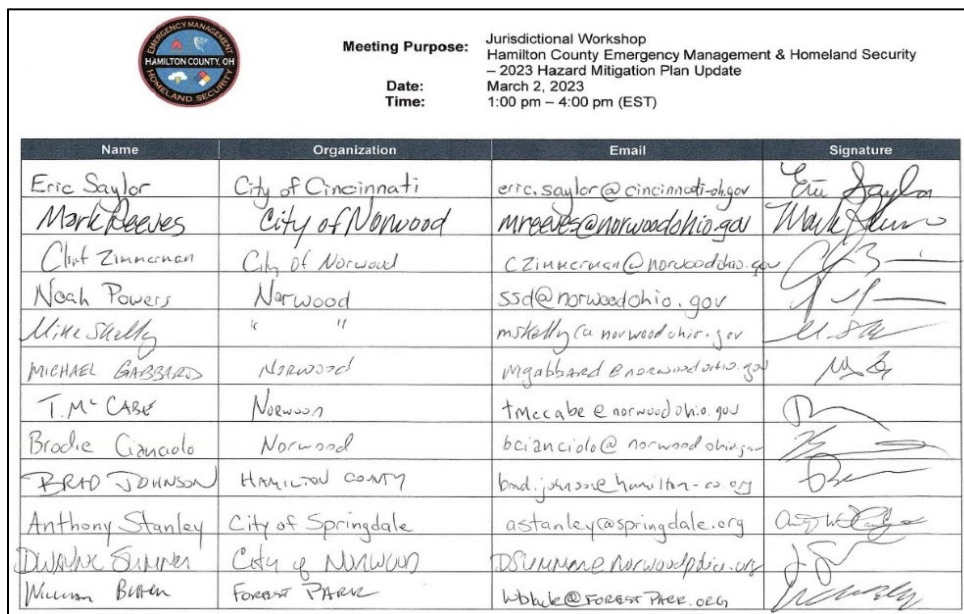 EMERGENCY MANAGEMENT
HAMILTON COUNTY, OH
HOMELAND SECURITY
Meeting Purpose: Jurisdictional Workshop
Hamilton County Emergency Management & Homeland Security
– 2023 Hazard Mitigation Plan Update
Date: March 2, 2023
Time: 1:00 pm – 4:00 pm (EST)
Name Organization Email Signature
Eric Saylor City of Cincinnati eric.saylor@cincinnati-oh.gov Eric Saylor
Mark Reeves City of Norwood mreeves@norwoodohio.gov Mark
Clint Zimmerman City of Norwood czimmerman@norwoodohio.gov
Noah Powers Norwood ssd@norwoodohio.gov
Mike Skelly " " mskelly@norwoodohio.gov
MICHAEL GABBARD NORWOOD mgabbard@norwoodohio.gov
T. McCABE NORWOOD tmccabe@norwoodohio.gov
Brodie Cianciolo Norwood bcianciolo@norwoodohio.gov
BRAD JOHNSON HAMILTON COUNTY brad.johnson@hamilton-co.org
Anthony Stanley City of Springdale astanley@springdale.org
DWAYNE SUMNER City of NORWOOD
WILLIAM FOREST PARK